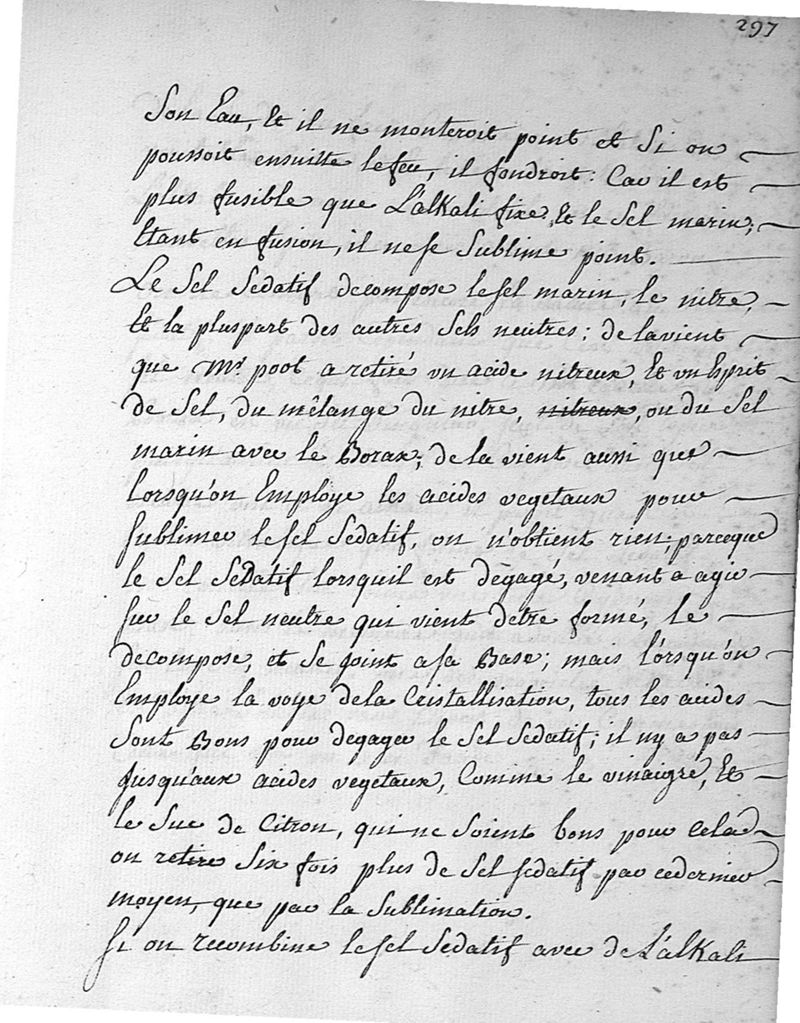 297
Son Eau, Et il ne monteroit point et Si on
poussoit ensuitte le feu, il fondroit: Car il est
plus fusible que L'alkali fixe, Et le Sel marin;
Etant en fusion, il ne se Sublime point.
Le Sel Sedatif decompose le sel marin, le nitre,
Et la pluspart des autres Sels neutres; de la vient
que Mr. poot a retiré un acide nitreux, Et un Esprit
de Sel, du mêlange du nitre, nitreux, ou du Sel
marin avec le Borax; de la vient aussi que
Lorsqu'on Employe les acides vegetaux pour
sublimer le sel Sedatif, on n'obtient rien; parceque
le Sel Sedatif lorsquil est dégagé, venant a agir
sur le Sel neutre qui vient detre formé, le
decompose, et Se joint a sa Base; mais lorsqu'on
Employe la voye de la Cristallisation, tous les acides
Sont Bons pour degager le Sel Sedatif; il ny a pas
Jusqu'aux acides vegetaux, Comme le vinaigre, Et
le Suc de Citron, qui ne Soient bons pour Cela
on retire Six fois plus de Sel sedatif par ce dernier
moyen, que par la Sublimation.
Si on recombine le sel Sedatif avec de L'alkali